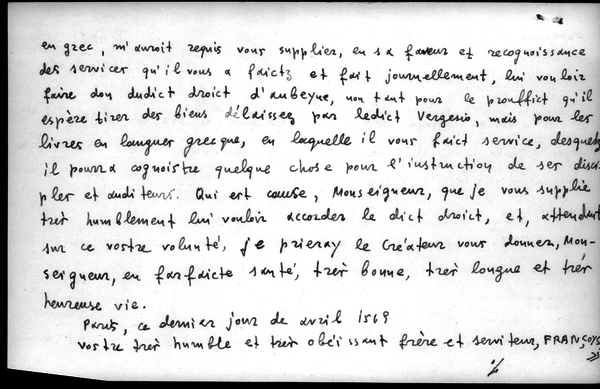 en grec, m'auroit requis vous supplier, en sa faveur et recognoissance
des services qu'il vous a faictz et fait journellement, lui vouloir
faire don dudict droict d'aubeyne, non tant pour le prouffict qu'il
espère tirer des biens délaissez par ledict Vergesio, mais pour les
livres en langues grecque, en laquelle il vous faict service, desquels
il pourra cognoistre quelque chose pour l'instruction de ses disci-
ples et auditeurs. Qui est cause, Monseigneur, que je vous supplie
très humblement lui vouloir accorder le dict droict, et, attendant
sur ce vostre volunté, je prieray le Créateur vous donner, Mon-
seigneur, en parfaicte santé, très bonne, très longue et très
heureuse vie.
Paris, ce dernier jour de avril 1569
Vostre très humble et très obéissant frère et serviteur, FRANÇOYS